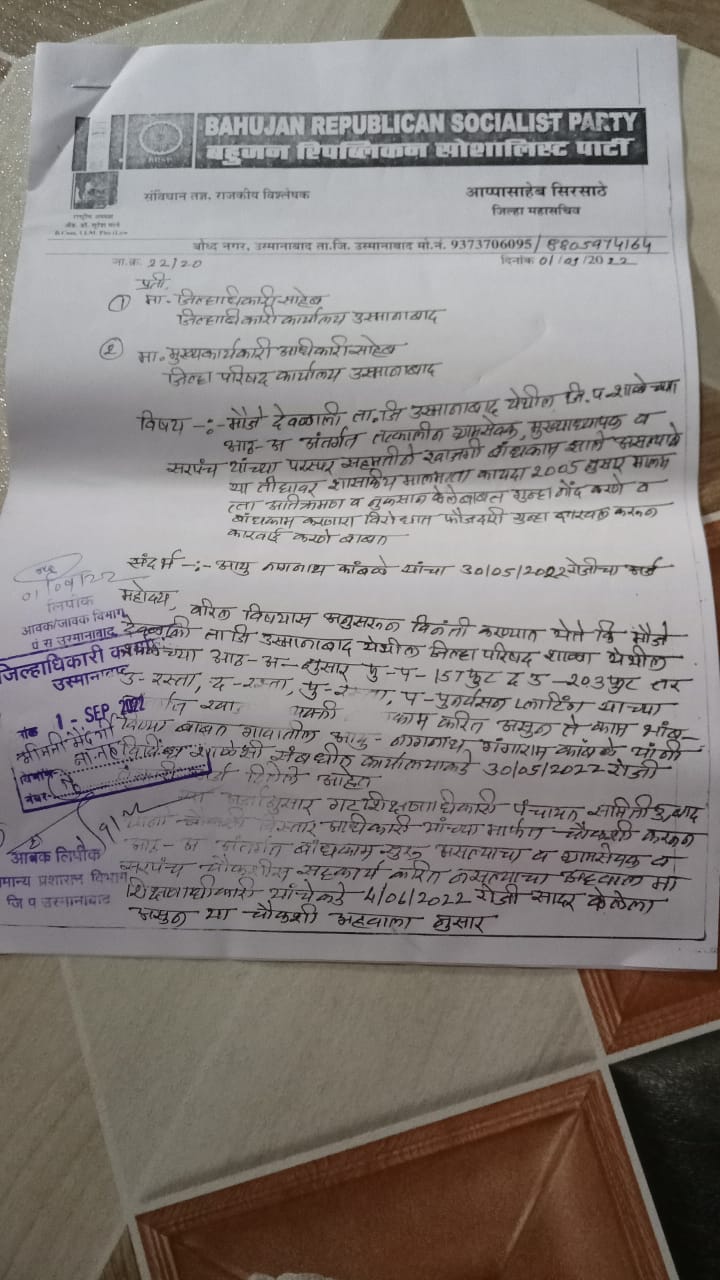 BAHUJAN REPUBLICAN SOCIALIST PARTY
बहुजन रिपब्लिकन सोशालिस्ट पार्टी
संविधान तज्ञ, राजकीय विश्लेषक
आप्पासाहेब सिरसाठे
जिल्हा महासचिव
राष्ट्रीय अध्यक्ष
बोध्द नगर, उस्मानाबाद ता.जि. उस्मानाबाद मो.नं. 9373706095/8805974164
जा.क्र. 22/20
दिनांक 01/09/2022
प्रती,
① मा. जिल्हाधिकारी साहेब
जिल्हाधिकारी कार्यालय उस्मानाबाद
② मा. मुख्यकार्यकारी अधिकारी साहेब
जिल्हा परिषद कार्यालय उस्मानाबाद
विषय -:- मौजे देवळाली ता.जि उस्मानाबाद येथील जि.प शाळेच्या
आठ-अ अंतर्गत तत्कालीन ग्रामसेवक, मुख्याध्यापक व
सरपंच यांच्या परस्पर सहमतीने खाजगी बांधकाम झाले असल्याने
या तीघावर शासकीय मालमत्ता कायदा 2005 नुसार मालम
त्ता अतिक्रमण व नुकसान केलेबाबत गुन्हा नोंद करणे व
बांधकाम करणारा विरोधात फौजदारी गुन्हा दाखल करून
कारवाई करणे बाबत
संदर्भ -:- आयु नागनाथ कांबळे यांचा 30/05/2022 रोजीचा अर्ज
महोदय,
वरिल विषयास अनुसरून विनंती करण्यात येते कि मौजे
देवळाली ता जि उस्मानाबाद येथील जिल्हा परिषद शाळा येथील
आठ-अ-नुसार पु-प-151 फुट द उ-203 फुट तर
उ-रस्ता, द-रस्ता, पु-रस्ता, प-पुनर्वसन प्लॉटिंग याच्या
करित असुन ते काम
बाबत गावातील आयु-नागनाथ गंगाराम कांबळे यांनी
शाळेशी संबंधीत कार्यालयाकडे 30/05/2022 रोजी
दिलेले आहेत
नुसार गटशिक्षणाधिकारी पंचायत समिती
विस्तार अधिकारी यांच्या मार्फत चौकशी करून
आठ-अ अंतर्गत बांधकाम सुरू असल्याचा व ग्रामसेवक व
सरपंच चौकशीस सहकार्य करित नसल्याचा अहवाल मा
शिक्षणाधिकारी यांचेकडे 4/06/2022 रोजी सादर केलेला
असुन या चौकशी अहवाला नुसार
01/09/22
लिपीक
आवक/जावक विभाग
पं स उस्मानाबाद
जिल्हाधिकारी कार्यालय
उस्मानाबाद
1 - SEP 2022
आवक लिपीक
सामान्य प्रशासन विभाग
जि प उस्मानाबाद